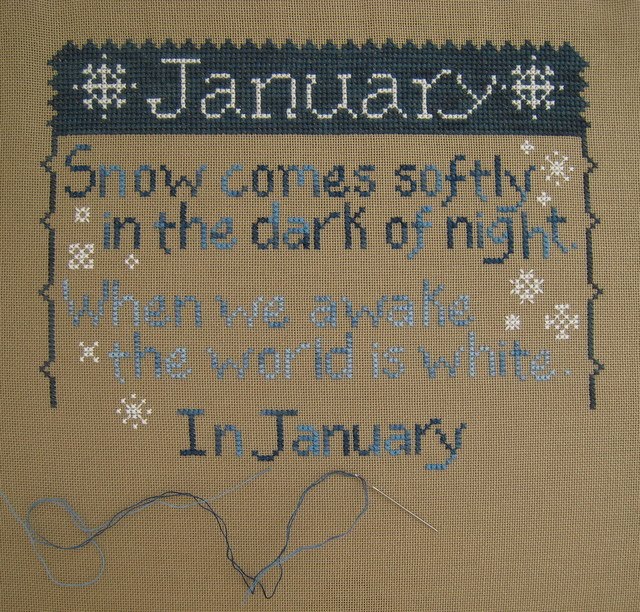 January
Snow comes softly
in the dark of night.
When we awake
the world is white.
In January